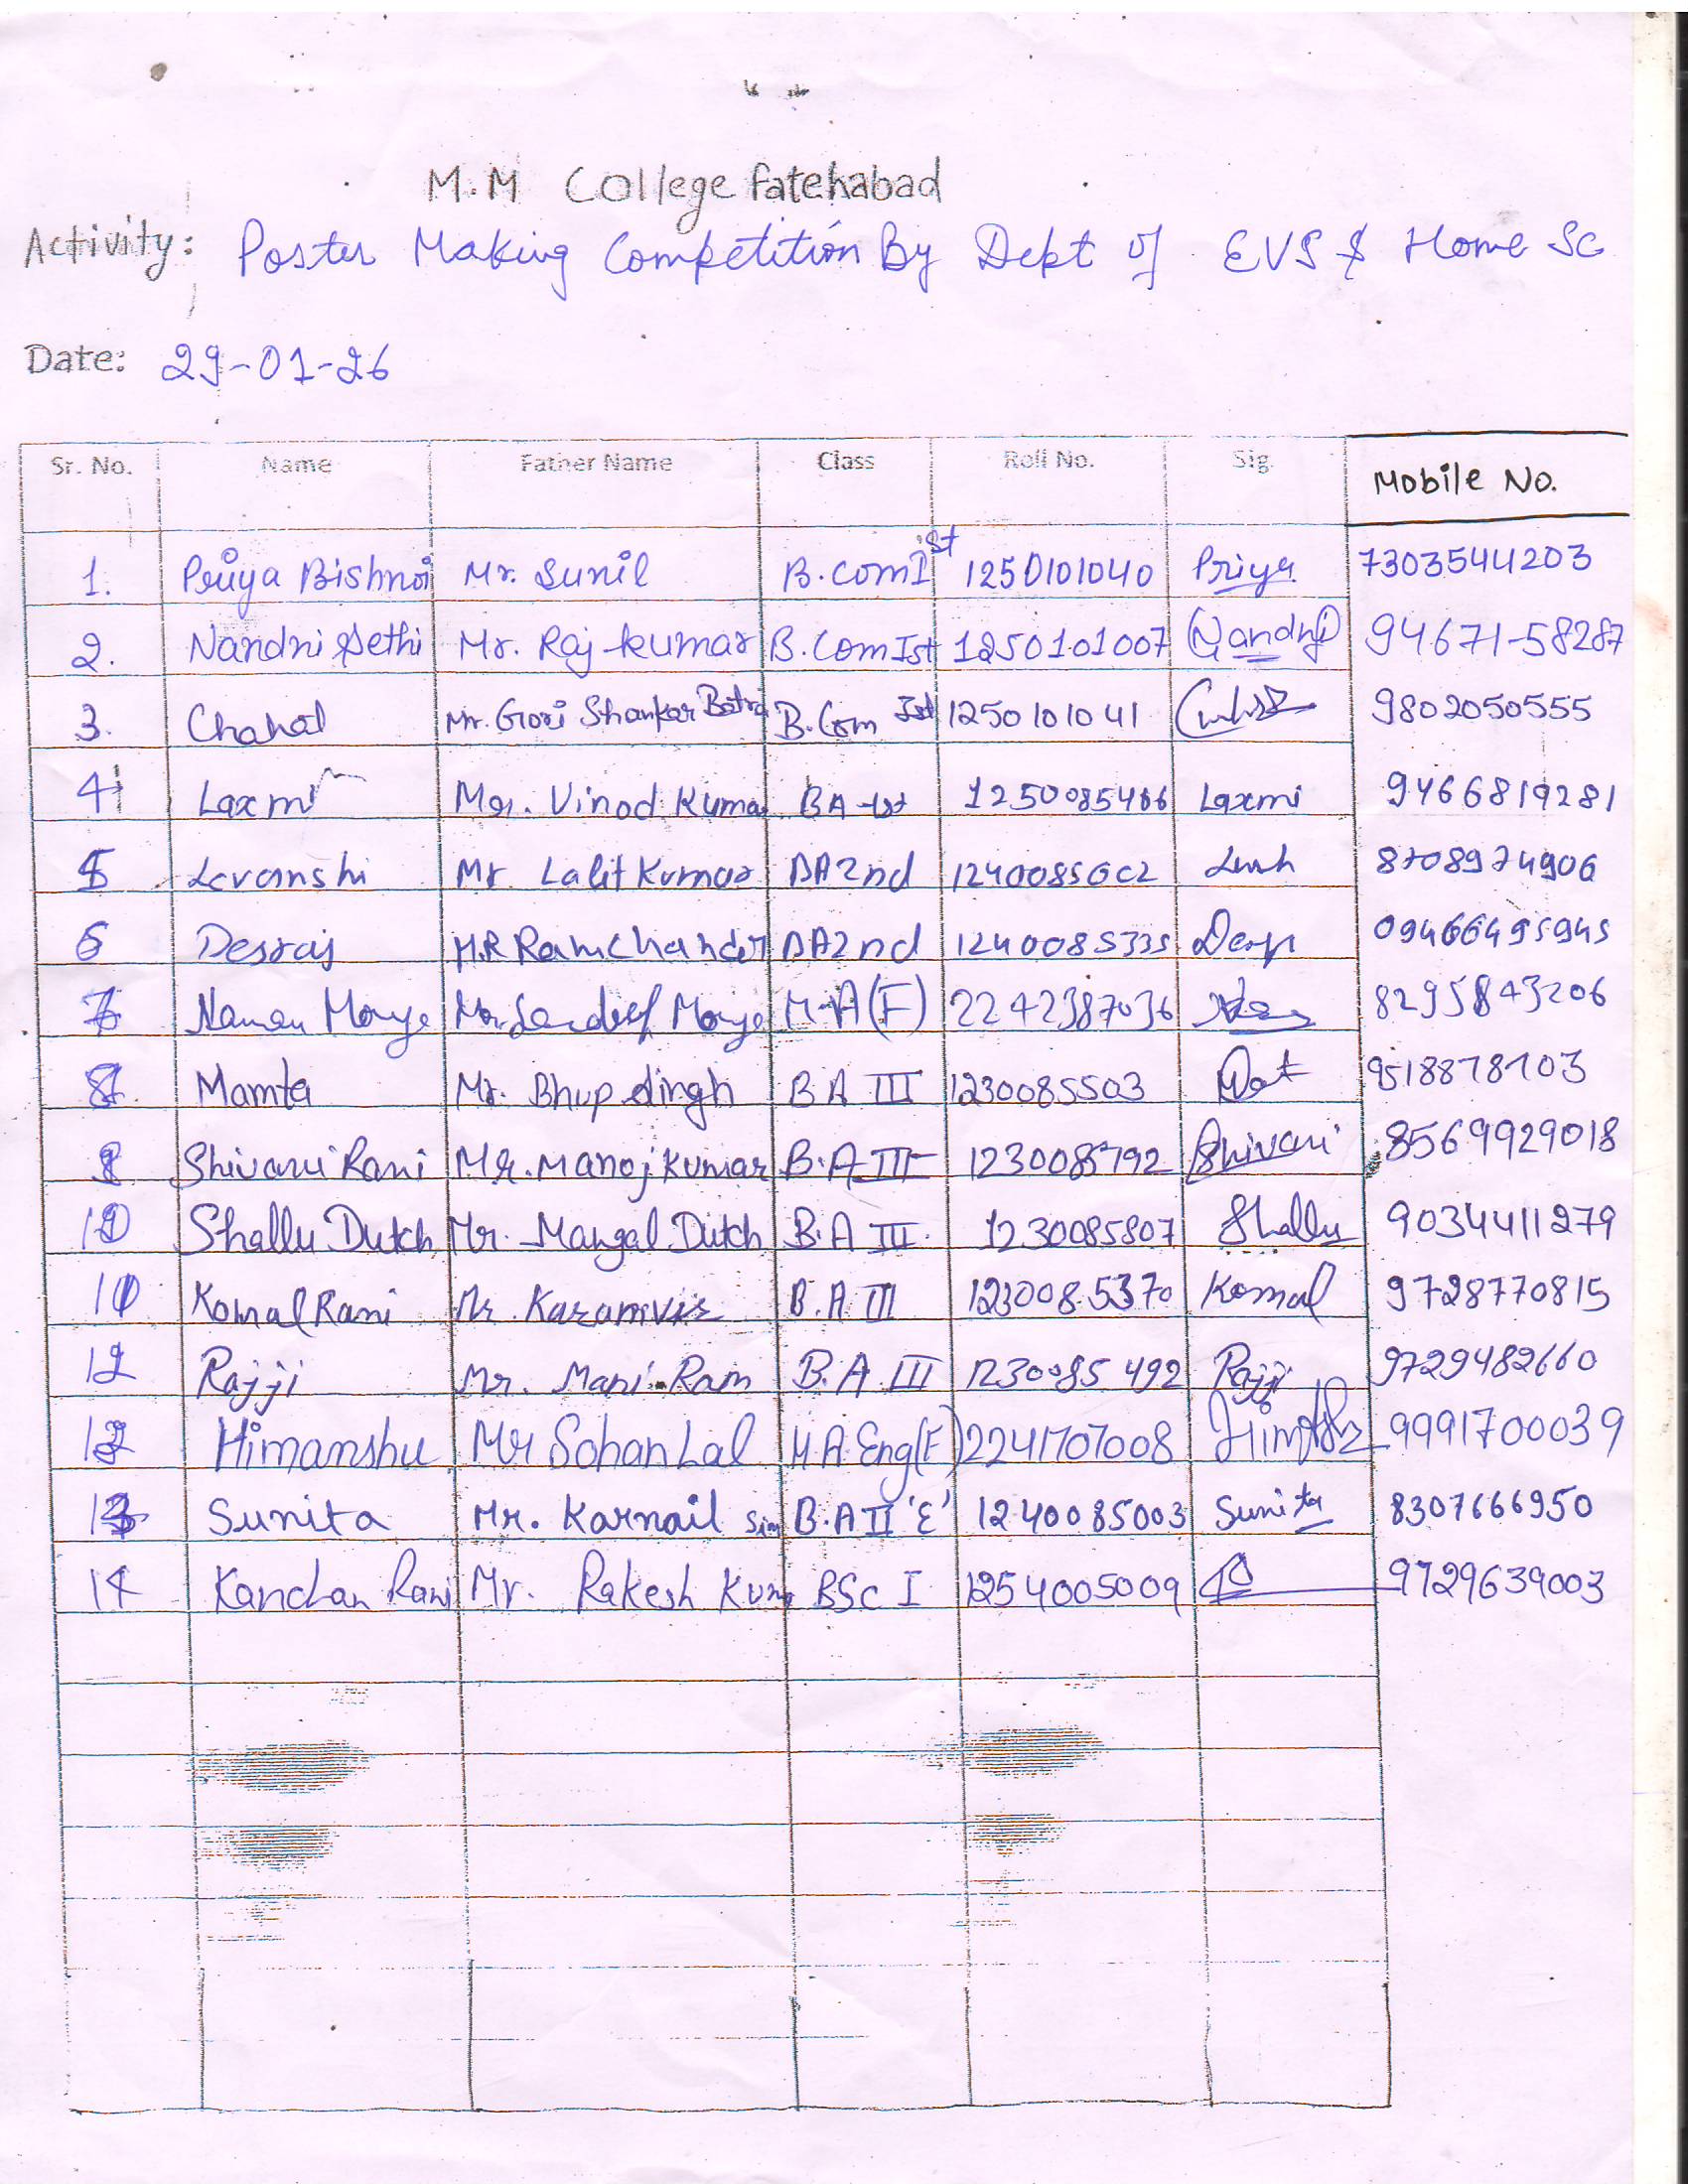 M.M College Fatehabad
Activity: Poster Making Competition By Dept of EVS & Home Sc
Date: 29-01-26
Sr. No. Name Father Name Class Roll No. Sig. Mobile No.
1. Priya Bishnoi Mr. Sunil B.Com Ist 1250101040 Priya 7303544203
2. Nandni Sethi Mr. Raj kumar B.Com Ist 1250101007 Nandni 94671-58287
3. Chahat Mr. Gori Shankar Batra B.Com Ist 1250101041 9802050555
4 Laxmi Mr. Vinod Kumar BA Ist 1250085466 Laxmi 9466819281
5 Mr. Lalit Kumar BA 2nd 1240085602 8708974906
6 Desraj M.R Ramchander BA2nd 1240085335 09466495945
7 Naman Mr. M.A (F) 2242387036 8295843206
8 Mamta Mr. Bhup Singh B A III 1230085503 9518878703
9 Shivani Rani Mr. Manoj Kumar B.A III 1230085792 Shivani 8569929018
10 Shallu Dutch Mr. Mangal Dutch B.A III. 1230085807 Shallu 9034411279
11 Komal Rani Mr. Karamvir B.A III 1230085370 Komal 9728770815
12 Rajji Mr. Mani Ram B.A III 1230085492 Rajji 9729482660
Himanshu Mr Sohan Lal M A Eng(F) 2241707008 9991700039
Sunita Mr. Karnail Sin B.A II 'E' 1240085003 Sunita 8307666950
14 Kanchan Rani Mr. Rakesh Kum BSc I 1254005009 9729639003